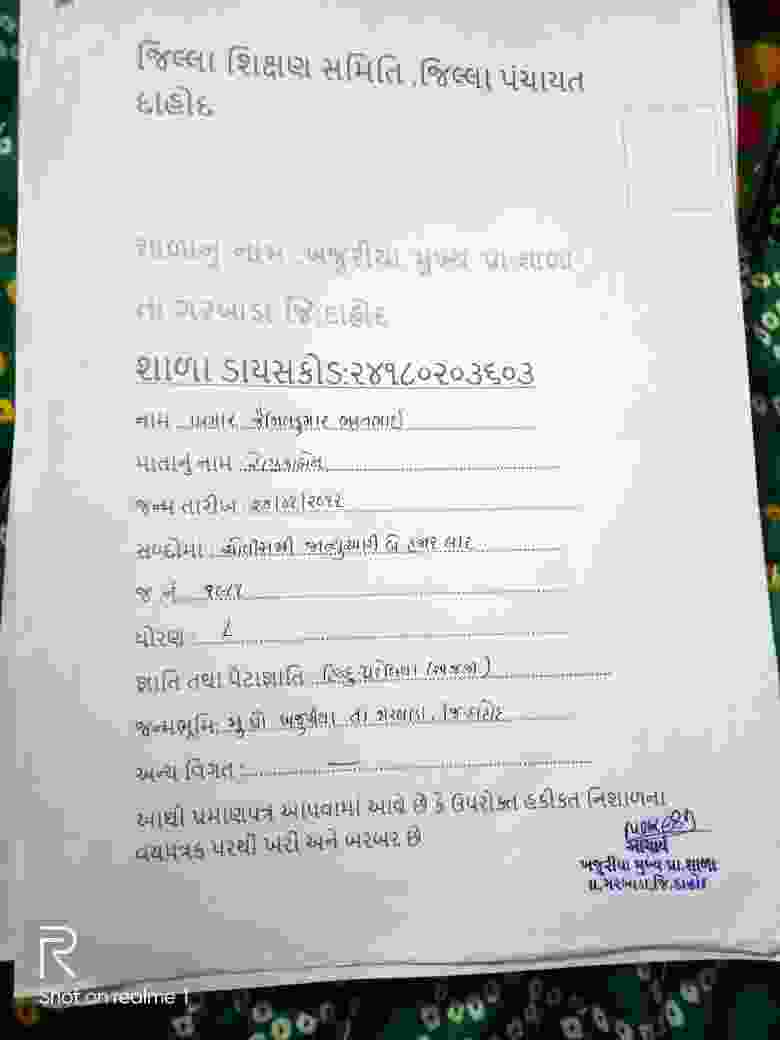 જિલ્લા શિક્ષણ સમિતિ .જિલ્લા પંચાયત
દાહોદ
શાળાનું નામ .ખજુરીયા મુખ્ય પ્રા.શાળા
તા ગરબાડા જિ.દાહોદ
શાળા ડાયસકોડ:૨૪૧૮૦૨૦૩૬૦૩
નામ પરમાર જૈમિલકુમાર ભરતભાઈ
માતાનું નામ
જન્મ તારીખ
સબ્દોમા જાન્યુઆરી બે હજાર બાર
જ નં
ધોરણ : ૮
જ્ઞાતિ તથા પેટાજ્ઞાતિ હિન્દુ (અજજા)
જન્મભૂમિ. મુ.પો ખજુરીયા તા ગરબાડા. જિ.દાહોદ
અન્ય વિગત: —
આથી પ્રમાણપત્ર આપવામાં આવે છે કે ઉપરોક્ત હકીકત નિશાળના
વયપત્રક પરથી ખરી અને બરબર છે
આચાર્ય
ખજુરીયા મુખ્ય પ્રા.શાળા
તા.ગરબાડા.જિ.દાહોદ
R
Shot on realme 1